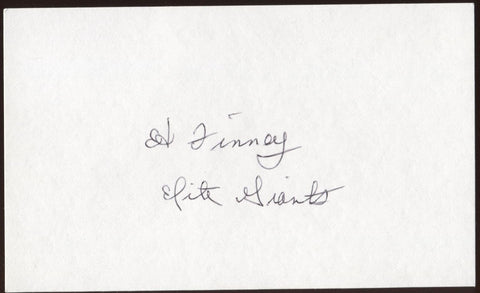 Ed Finney
Elite Giants